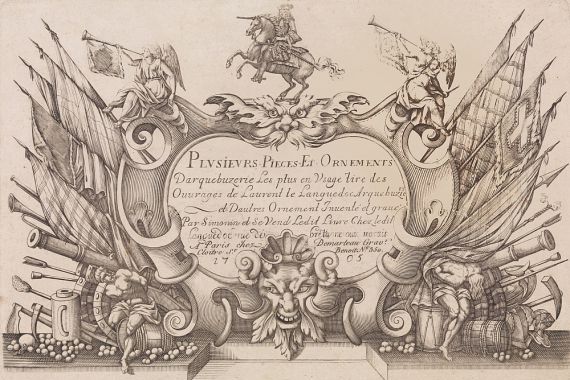 PLVSIEVRS · PIECES · ET · ORNEMENTS
Darquebuzerie Les plus en Vsage tire des
Ouurages de Laurent le Languedoc Arquebuzie
et Dautres Ornement Inuente et graue
Par Simonin et se Vend Ledit Liure Chez ledit
A Paris chez Demarteau Grav.r
Cloitre St. Benoit No.
17 05